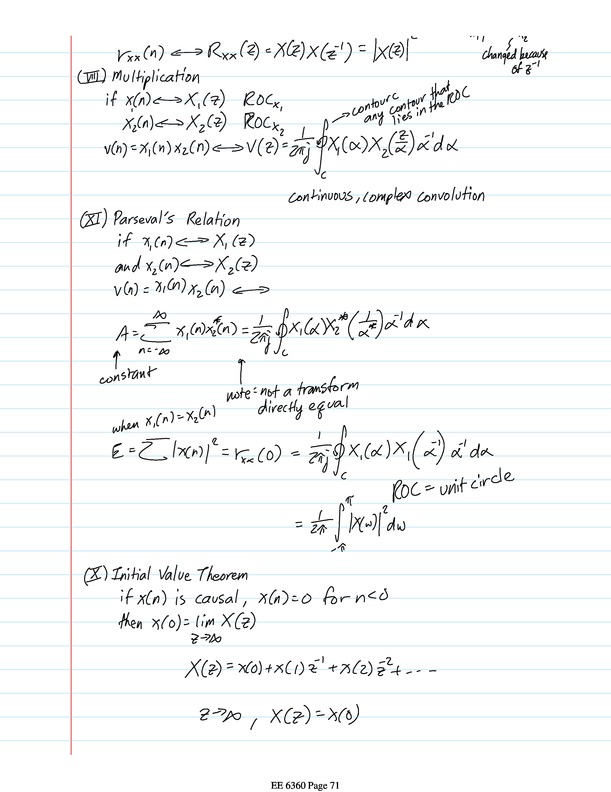 r_xx(n) ⟷ R_xx(z) = X(z) X(z⁻¹) = |X(z)|²
changed because
of z⁻¹
(VIII) Multiplication
if x(n) ⟷ X₁(z) ROC_x₁
x₂(n) ⟷ X₂(z) ROC_x₂
→ contour c
any contour that
lies in the ROC
v(n) = x₁(n) x₂(n) ⟷ V(z) = 1/2πj ∮_C X₁(α) X₂(z/α) α⁻¹ dα
continuous, complex convolution
(XI) Parseval's Relation
if x₁(n) ⟷ X₁(z)
and x₂(n) ⟷ X₂(z)
v(n) = x₁(n) x₂(n) ⟷
A = ∑_{n=-∞}^{∞} x₁(n) x₂*(n) = 1/2πj ∮_C X₁(α) X₂*(1/α*) α⁻¹ dα
constant
note: not a transform
directly equal
when x₁(n) = x₂(n)
E = ∑ |x(n)|² = r_xx(0) = 1/2πj ∮_C X₁(α) X₁(α⁻¹) α⁻¹ dα
ROC = unit circle
= 1/2π ∫_{-π}^{π} |X(ω)|² dω
(X) Initial Value Theorem
if x(n) is causal, x(n) = 0 for n<0
then x(0) = lim X(z)
z→∞
X(z) = x(0) + x(1) z⁻¹ + x(2) z⁻² + ----
z→∞, X(z) = x(0)
EE 6360 Page 71